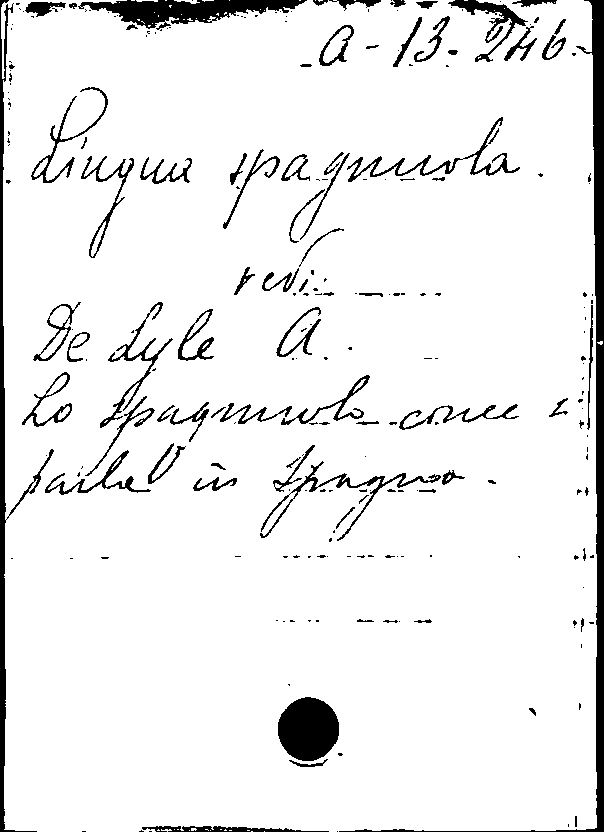 A-13-246.
Lingua spagnuola.
vedi:
De Lyle A.
Lo spagnuolo come si
parla in Spagna.